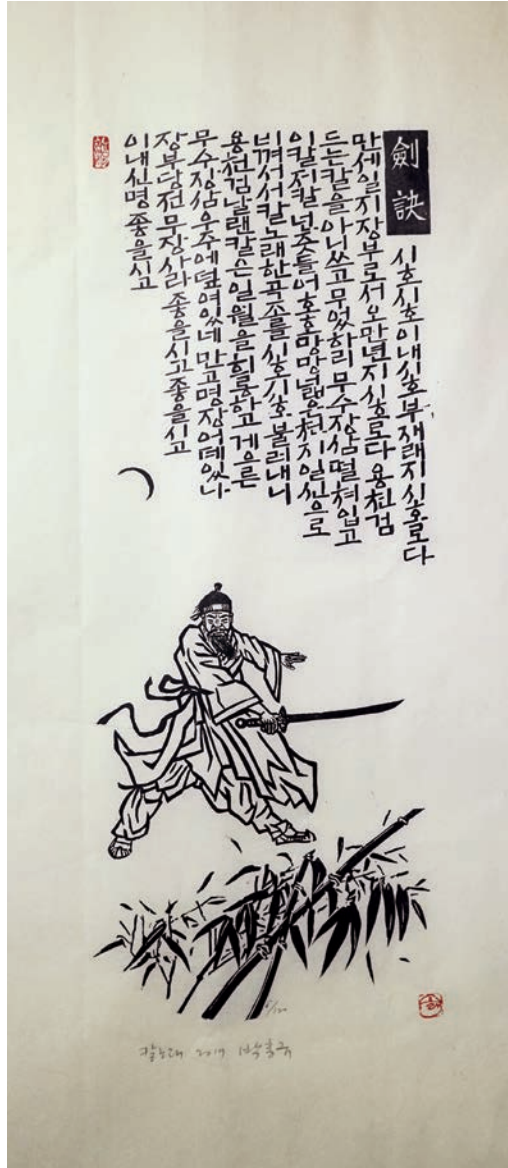 劍訣
시호시호이내시호부재래지시호로다
만세일지장부로서오만년지시호로다 용천검
드는칼을아니쓰고무엇하리 무수장삼떨쳐입고
이칼저칼넌줏들어호호망망넓은천지일신으로
비껴서서칼노래한곡조를시호시호불러내니
용천검날랜칼은일월을희롱하고게으른
무수장삼우주에덮여있네 만고명장어데있나
장부당전무장사라 좋을시고좋을시고
이내신명좋을시고
칼노래 2019 박홍규